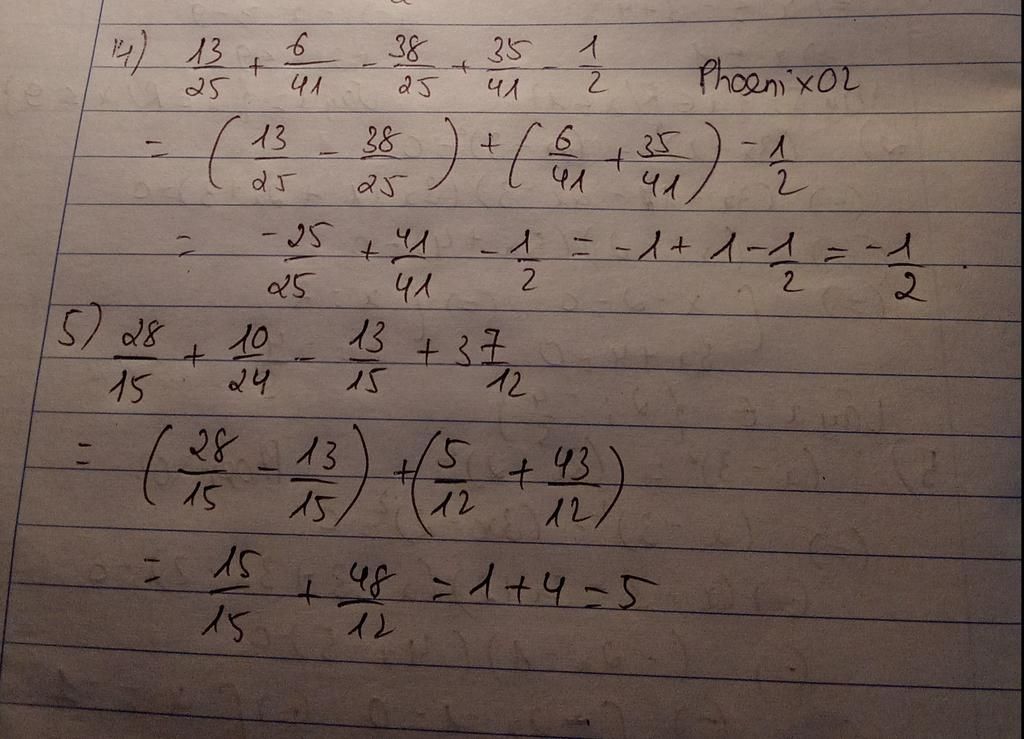 4) 13/25 + 6/41 - 38/25 + 35/41 - 1/2 Phoenix02
= (13/25 - 38/25) + (6/41 + 35/41) - 1/2
= -25/25 + 41/41 - 1/2 = -1 + 1 - 1/2 = -1/2.
5) 28/15 + 10/24 - 13/15 + 3 7/12
= (28/15 - 13/15) + (5/12 + 43/12)
= 15/15 + 48/12 = 1 + 4 = 5